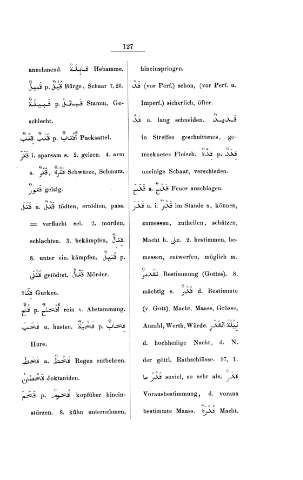 127
annehmend قَبِيلَةٌ Hebamme.
قَبِيلٌ p. قُبُلٌ Bürge, Schaar 7,26.
قَبِيلَةٌ p. قَبَائِلُ Stamm, Ge-
schlecht.
قَتَبٌ p. أَقْتَابٌ Packsattel.
قَتَرَ i. sparsam s. 2. geizen. 4. arm
s. قَتَرٌ, قَتَرَةٌ Schwärze, Schaum.
قَتُورٌ geizig.
قَتَلَ u. قَتْلٌ tödten, ermorden, pass.
= verflucht sei. 2. morden,
schlachten. 3. bekämpfen, قِتَالٌ.
8. unter ein. kämpfen. قَتِيلٌ p.
قَتْلَى getödtet. قَاتِلٌ Mörder.
قِثَّاءٌ Gurken.
قُحٌّ p. أَقْحَاحٌ rein v. Abstammung.
قَحَبَ u. husten. قَحْبَةٌ p. قِحَابٌ
Hure.
قَحَطَ a. قَحْطٌ Regen entbehren.
قَحْطَانُ Joktaniden.
قَحَمَ p. قُحُومٌ kopfüber hinein-
stürzen. 8. kühn unternehmen,
hineinspringen.
قَدْ (vor Perf.) schon, (vor Perf. u.
Imperf.) sicherlich, öfter.
قَدَّ u. lang schneiden. قَدِيدٌ
in Streifen geschnittenes, ge-
trocknetes Fleisch. قِدَّةٌ p. قِدَدٌ
uneinige Schaar, verschieden.
قَدَحَ a. قَدْحٌ Feuer anschlagen.
قَدَرَ u i. قَدْرٌ im Stande s. können,
zumessen, zutheilen, schätzen,
Macht h. على. 2. bestimmen, be-
messen, entwerfen, möglich m.
تَقْدِيرٌ Bestimmung (Gottes). 8.
mächtig s. قَدْرٌ d. Bestimmte
(v. Gott). Macht. Maass, Grösse,
Anzahl, Werth, Würde. لَيْلَةُ القَدْرِ
d. hochheilige Nacht, d. N.
der göttl. Rathschlüsse. 97, 1.
قَدْرَ ما soviel, so sehr als. قَدَرٌ
Vorausbestimmung, d. voraus
bestimmte Maass. قُدْرَةٌ Macht.